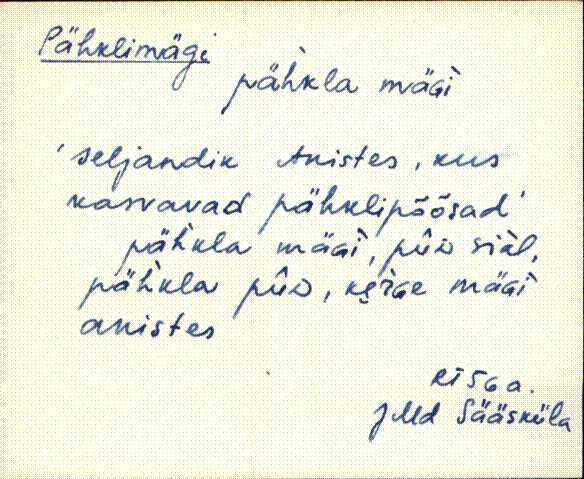 Pähklimägi
pæ̀hkla mäGì
'seljandik Anistes, kus
kasvavad pähklipõõsad'
pàhkla mäGì, pûᴅ siàl,
pähkla pûᴅ, keṛGe mäGì
anistes
RISG a.
JMd Sääsküla